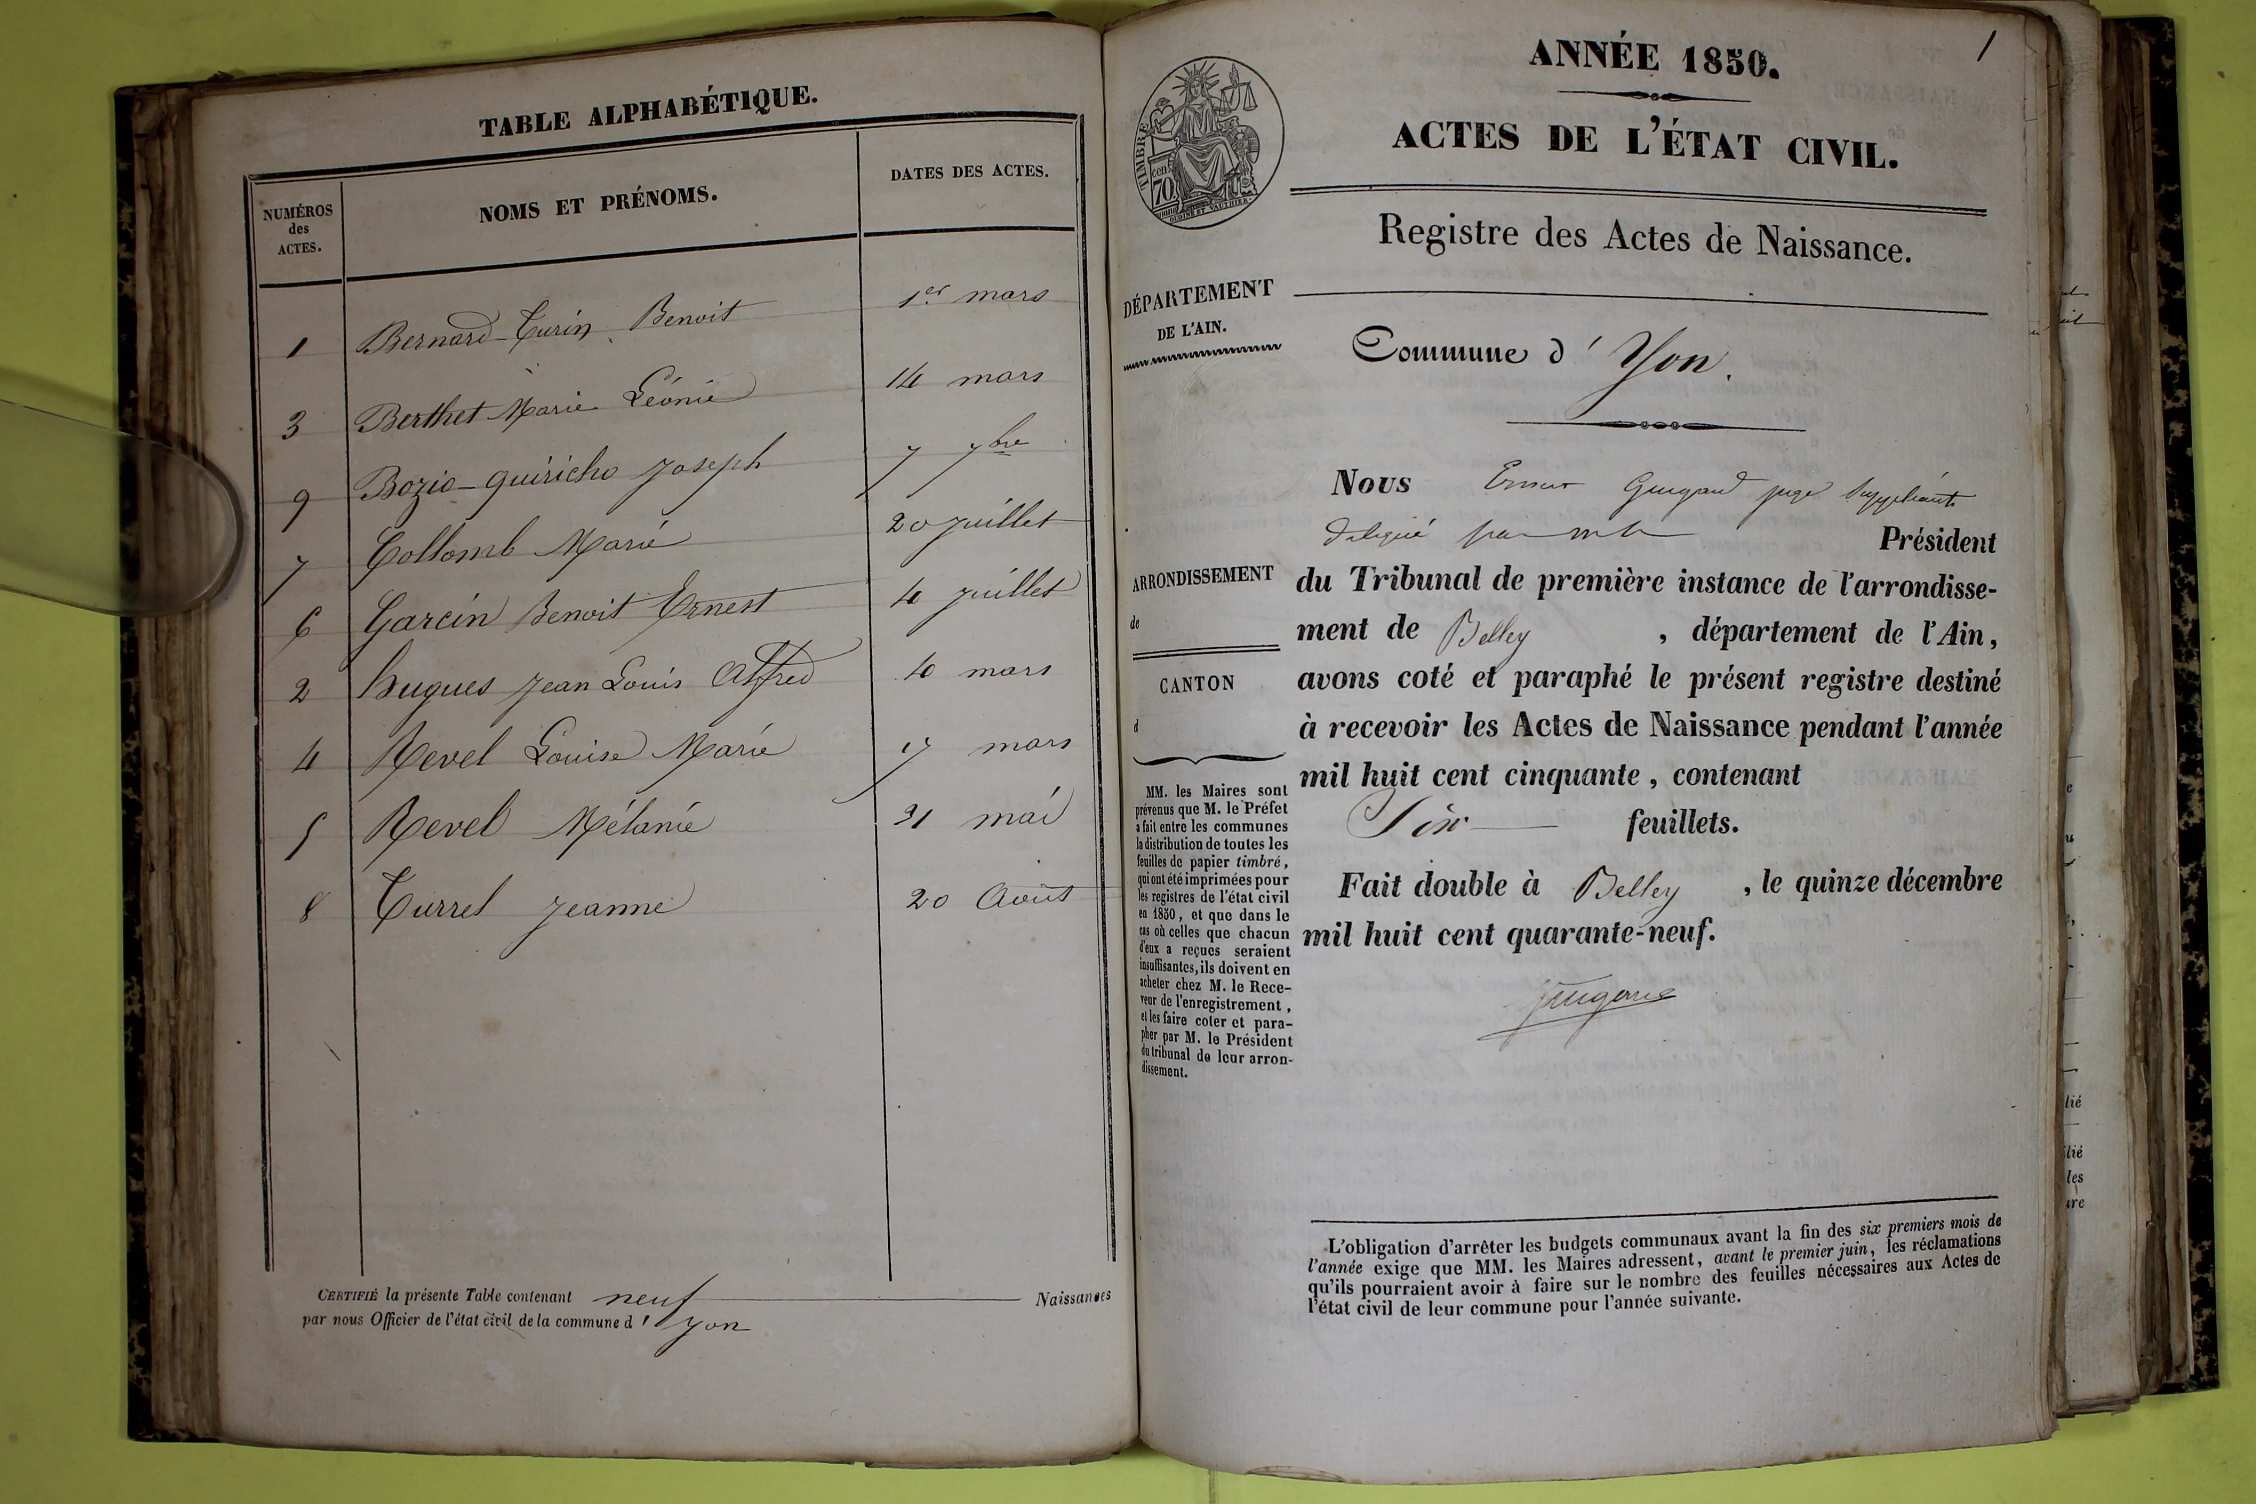 TABLE ALPHABÉTIQUE.
NUMÉROS
des
ACTES.
NOMS ET PRÉNOMS.
DATES DES ACTES.
1 Bernard-Turin Benoit 1er mars
3 Berthet Marie Léonie 14 mars
9 Bozio-quiricho Joseph 7 7bre
7 Collomb Marie 20 juillet
6 Garcin Benoit Ernest 4 juillet
2 hugues Jean Louis Alfred 4 mars
4 Revel Louise Marie 17 mars
5 Revel Mélanie 31 mai
8 Turrel Jeanne 20 Août
CERTIFIÉ la présente Table contenant neuf Naissances
par nous Officier de l'état civil de la commune d' yon
1
ANNÉE 1850.
ACTES DE L'ÉTAT CIVIL.
TIMBRE
70 cen.
Registre des Actes de Naissance.
DÉPARTEMENT
DE L'AIN.
Commune d' Yon.
ARRONDISSEMENT
de
CANTON
d
MM. les Maires sont
prévenus que M. le Préfet
a fait entre les communes
la distribution de toutes les
feuilles de papier timbré,
qui ont été imprimées pour
les registres de l'état civil
en 1850, et que dans le
cas où celles que chacun
d'eux a reçues seraient
insuffisantes, ils doivent en
acheter chez M. le Rece-
veur de l'enregistrement,
et les faire coter et para-
pher par M. le Président
du tribunal de leur arron-
dissement.
Nous juge Suppléant
délégué par Président
du Tribunal de première instance de l'arrondisse-
ment de Belley , département de l'Ain,
avons coté et paraphé le présent registre destiné
à recevoir les Actes de Naissance pendant l'année
mil huit cent cinquante, contenant
Six feuillets.
Fait double à Belley , le quinze décembre
mil huit cent quarante-neuf.
L'obligation d'arrêter les budgets communaux avant la fin des six premiers mois de
l'année exige que MM. les Maires adressent, avant le premier juin, les réclamations
qu'ils pourraient avoir à faire sur le nombre des feuilles nécessaires aux Actes de
l'état civil de leur commune pour l'année suivante.